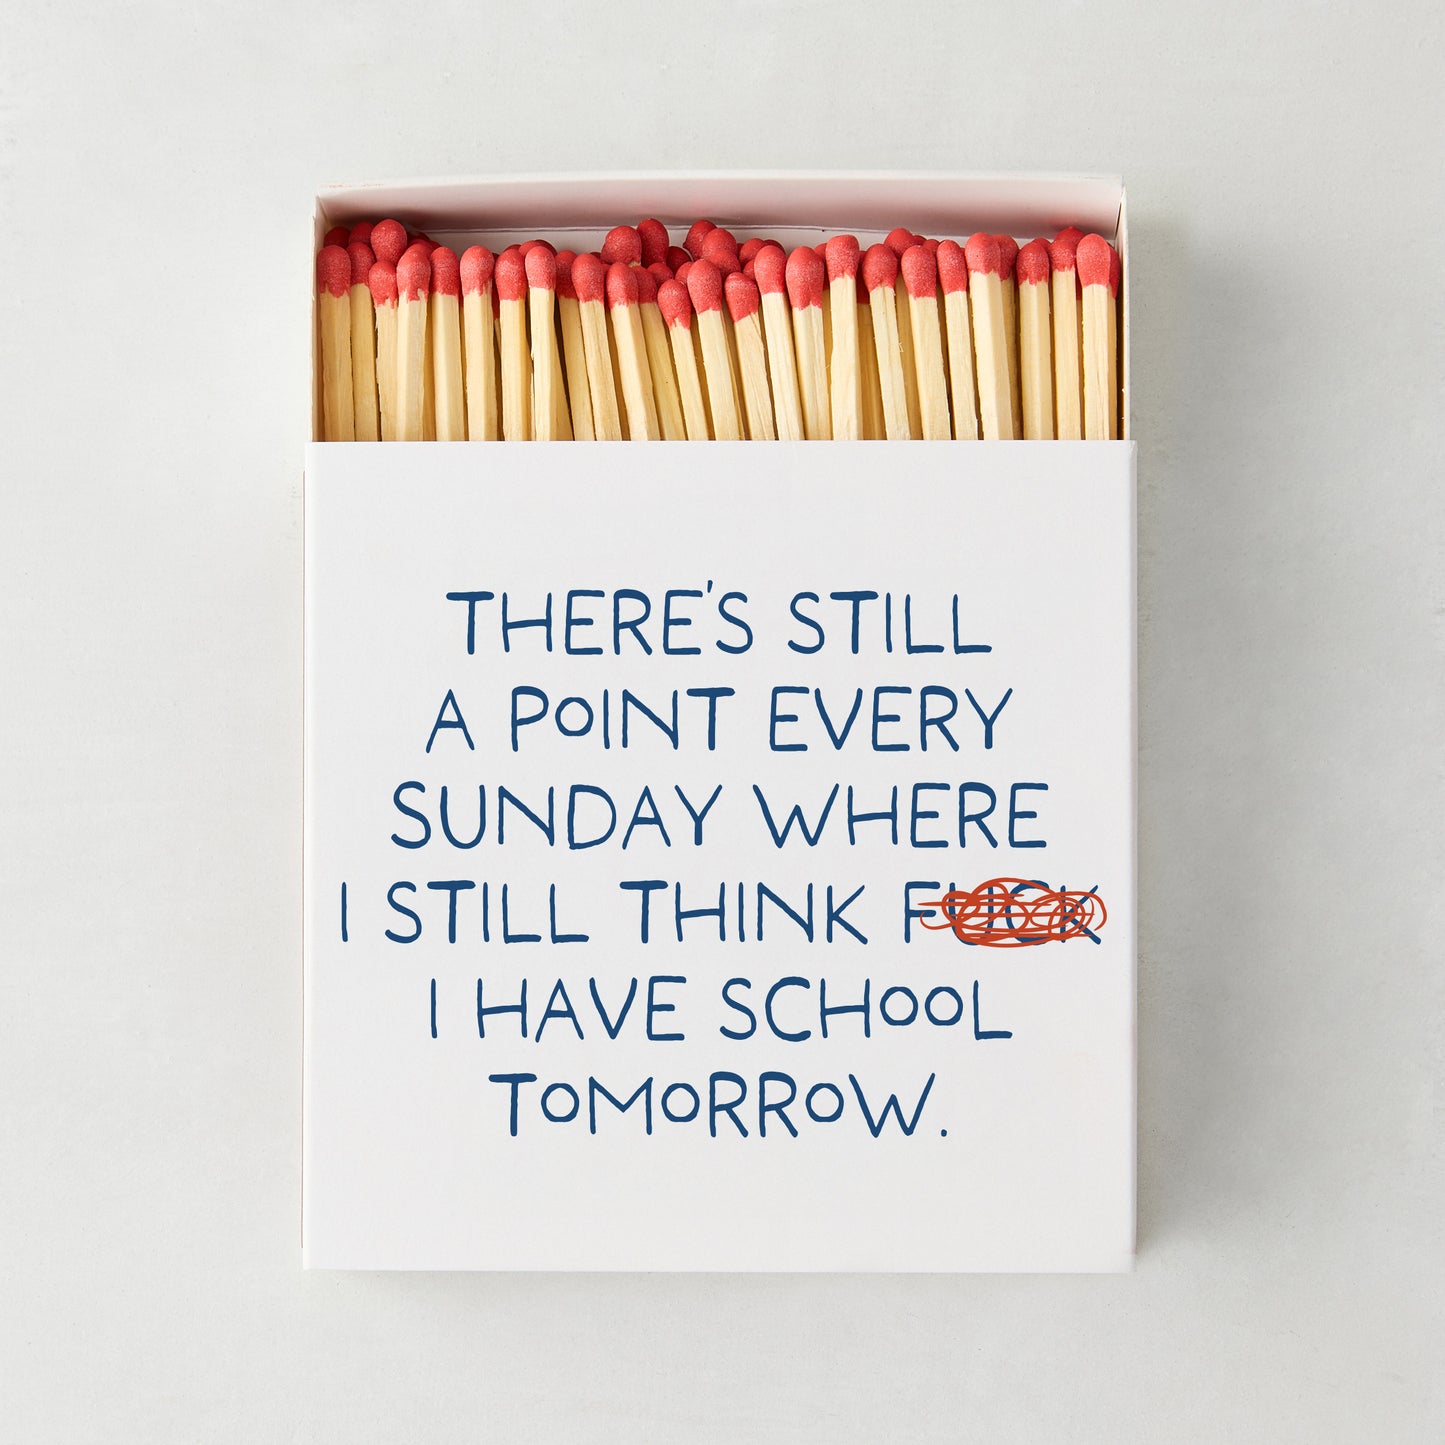 THERE'S STILL
A POINT EVERY
SUNDAY WHERE
I STILL THINK FUCK
I HAVE SCHOOL
TOMORROW.